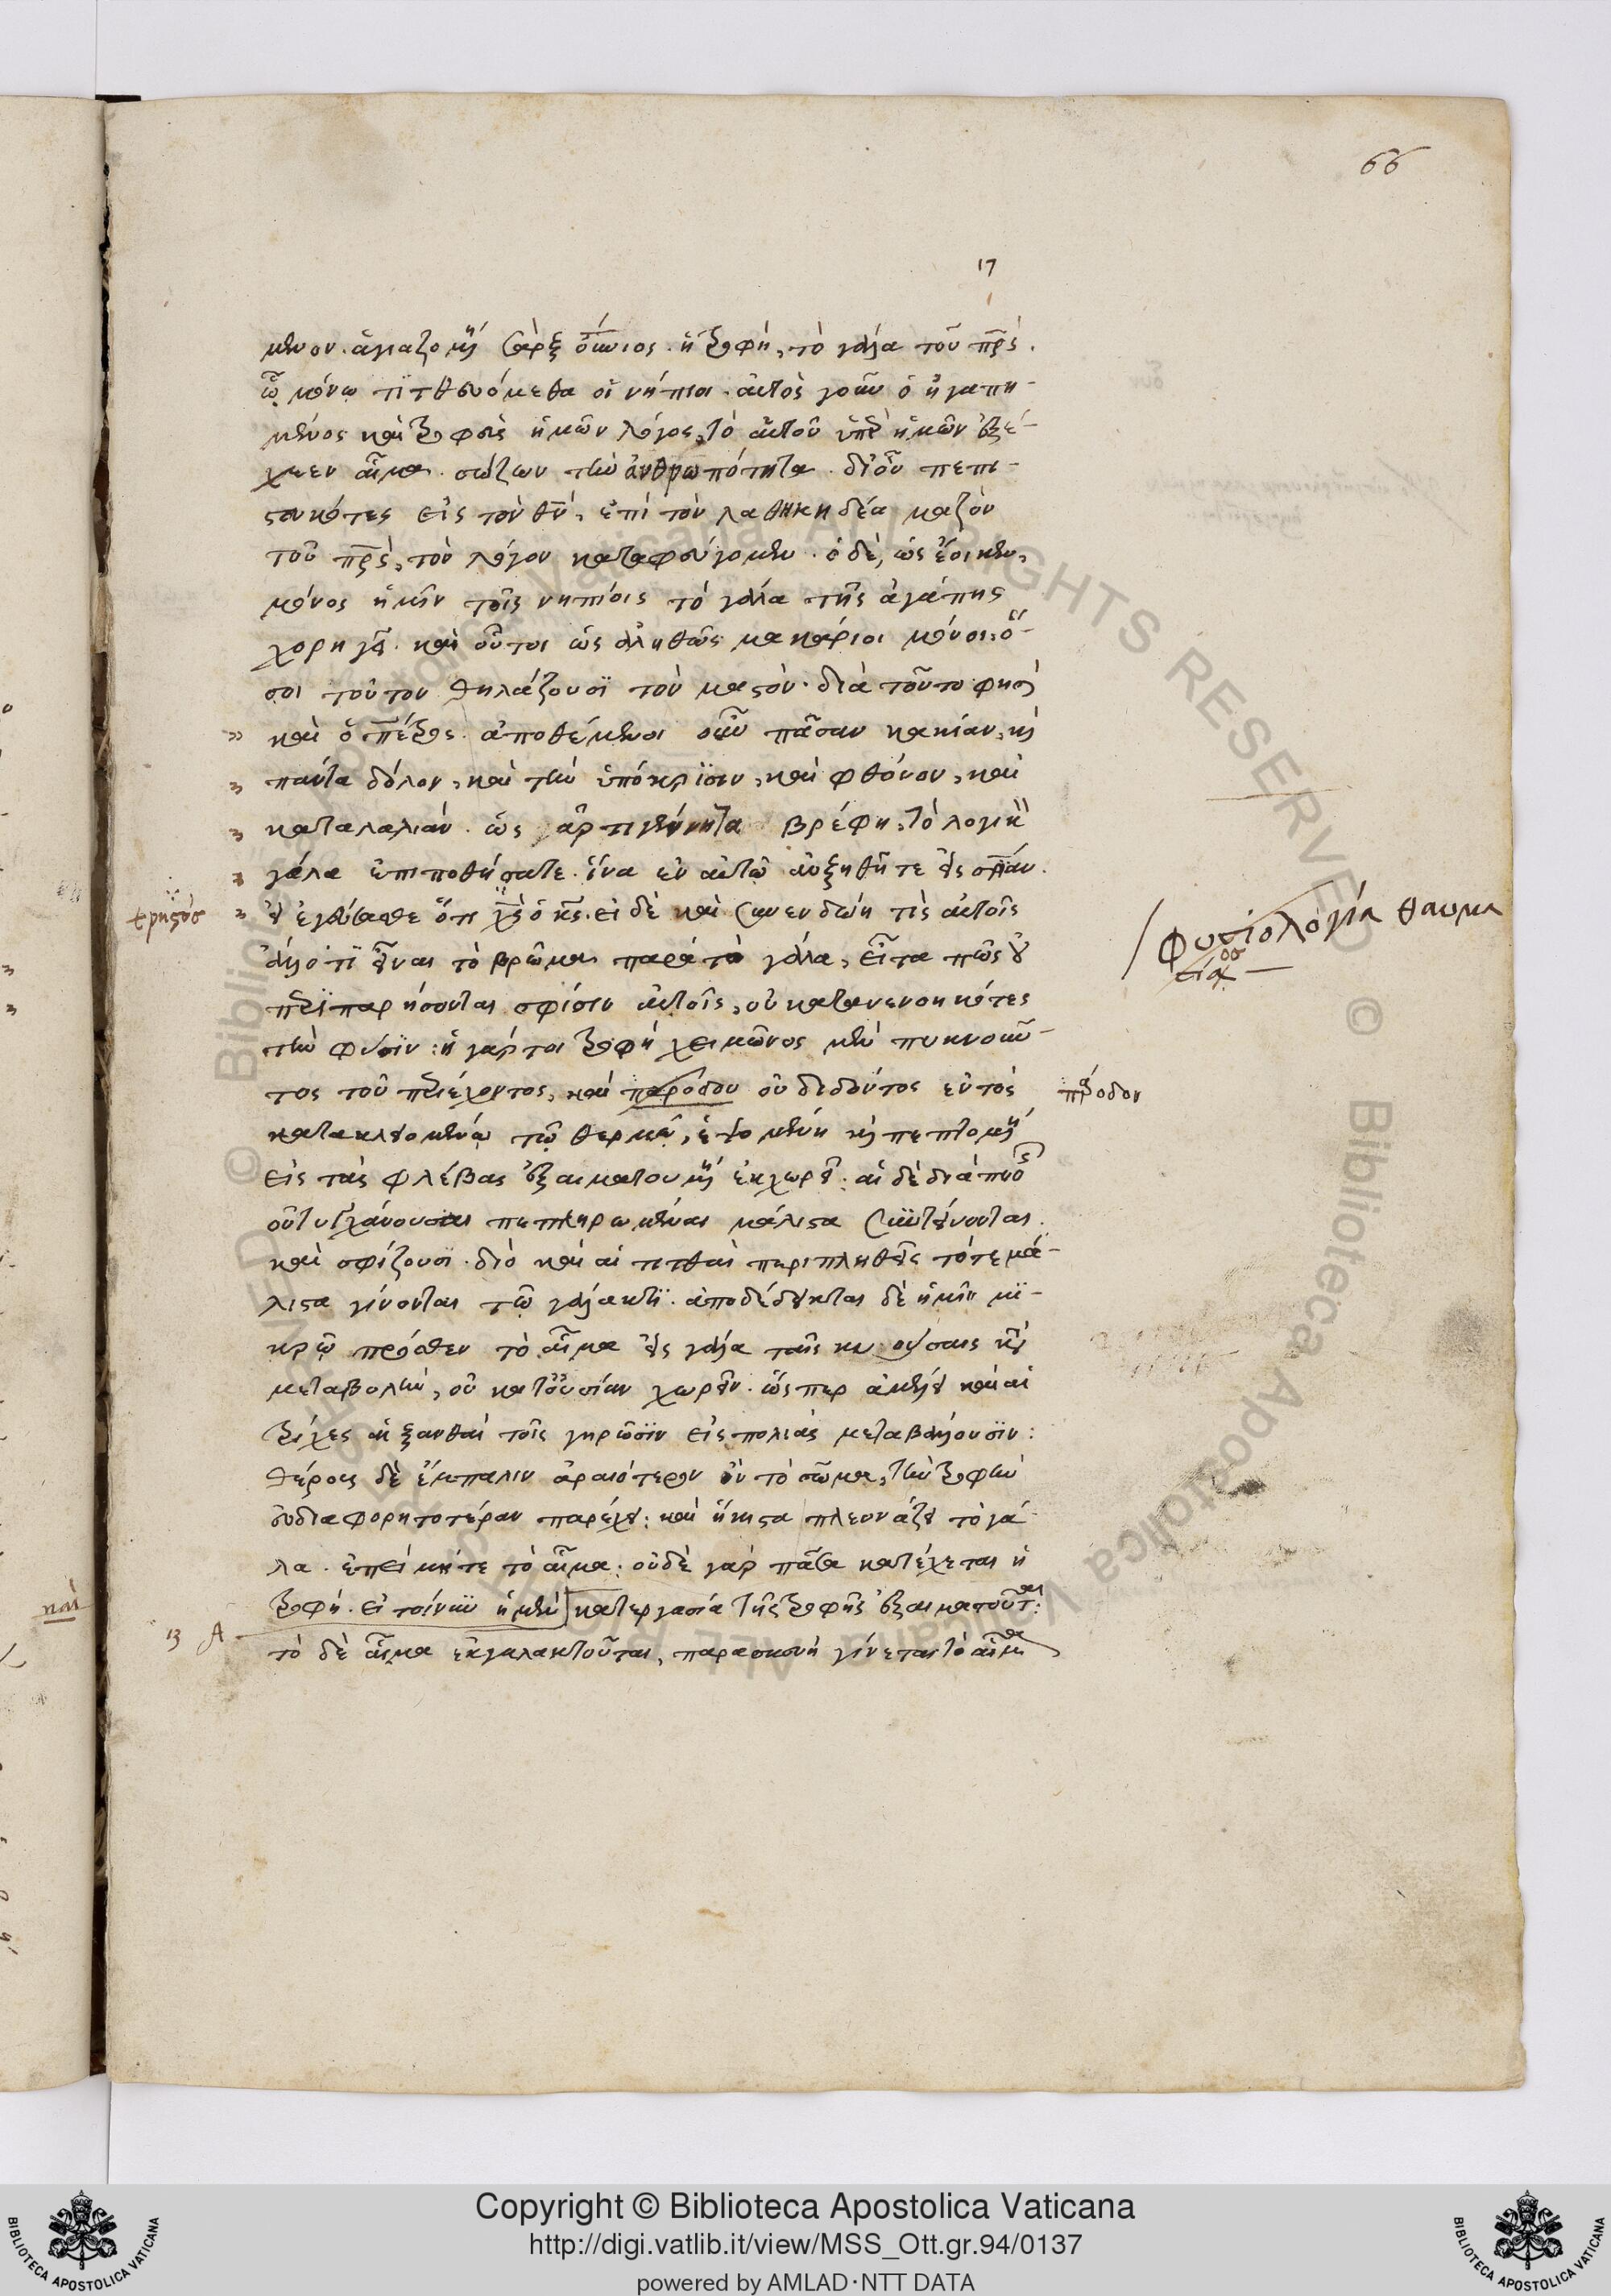 66
17
μενον. ἁγιαζομένη σὰρξ οὐράνιος. ἡ τροφὴ, τὸ γάλα τοῦ πρς.
ᾧ μόνῳ τιτθευόμεθα οἱ νήπιοι. αὐτὸς γοῦν ὁ ἠγαπη-
μένος καὶ τροφεὺς ἡμῶν λόγος, τὸ αὐτοῦ ὑπὲρ ἡμῶν ἐξέ-
χεεν αἷμα. σώζων τὴν ἀνθρωπότητα. δι' οὗ πεπι-
στευκότες εἰς τὸν θν, ἐπὶ τὸν λαθικηδέα μαζὸν
τοῦ πρς, τὸν λόγον καταφεύγομεν. ὁ δὲ, ὡς ἔοικεν,
μόνος ἡμῖν τοῖς νηπίοις τὸ γάλα τῆς ἀγάπης
χορηγεῖ. καὶ οὗτοι ὡς ἀληθῶς μακάριοι μόνοι, ὅ-
σοι τοῦτον θηλάζουσι τὸν μαστόν. διὰ τοῦτο φησὶ
καὶ ὁ πέτρος. ἀποθέμενοι οὖν πᾶσαν κακίαν, καὶ
πάντα δόλον, καὶ τὴν ὑπόκρισιν, καὶ φθόνον, καὶ
καταλαλιάν. ὡς ἀρτιγέννητα βρέφη, τὸ λογικὸν
γάλα ἐπιποθήσατε. ἵνα ἐν αὐτῷ αὐξηθῆτε εἰς σρίαν.
εἰ ἐγεύσασθε ὅτι χς ὁ κς. εἰ δὲ καὶ συνενδῴη τὶς αὐτοῖς
ἄλλο τι εἶναι τὸ βρῶμα παρὰ τὸ γάλα, εἶτα πῶς οὐ
περιπαρήσονται σφίσιν αὐτοῖς, οὐ κατανενοηκότες
τὴν φύσιν: ἡ γάρ τοι τροφὴ χειμῶνος μὲν πυκνοῦν-
τος τοῦ περιέχοντος, καὶ παρόδου οὐ διδόντος ἐντὸς
κατακλειομένῳ τῷ θερμῷ, ἑψομένη καὶ πεπτομένη
εἰς τὰς φλέβας ἐξαιματουμένη ἐκχωρεῖ. αἱ δὲ διαπνοῆς
οὐ τυγχάνουσαι πεπληρωμέναι μάλιστα συντείνονται
καὶ σφύζουσι. διὸ καὶ αἱ τιτθαὶ περιπληθεῖς τότε μά-
λιστα γίνονται τῷ γάλακτι. ἀποδέδεικται δὲ ἡμῖν μι-
κρῷ πρόσθεν τὸ αἷμα εἰς γάλα ταῖς κυούσαις κατὰ
μεταβολὴν, οὐ κατ' οὐσίαν χωρεῖν. ὥσπερ ἀμέλει καὶ αἱ
τρίχες αἱ ξανθαὶ τοῖς γηρῶσιν εἰς πολιὰς μεταβάλλουσιν:
θέρους δὲ ἔμπαλιν ἀραιότερον ὂν τὸ σῶμα, τὴν τροφὴν
εὐδιαφορητοτέραν παρέχει: καὶ ἥκιστα πλεονάζει τὸ γά-
λα. ἐπεὶ μήτε τὸ αἷμα: οὐδὲ γὰρ πᾶσα κατέχεται ἡ
τροφή. εἰ τοίνυν ἡ μὲν κατεργασία τῆς τροφῆς ἐξαιματοῦται:
τὸ δὲ αἷμα ἐκγαλακτοῦται, παρασκευὴ γίνεται τὸ αἷμα
χρηστὸς
Φυσιολογία θαυμα
σία
πάροδον
13 A
καὶ